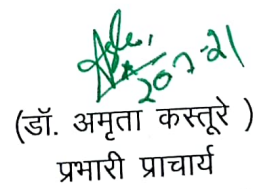 20-7-21
(डॉ. अमृता कस्तूरे )
प्रभारी प्राचार्य